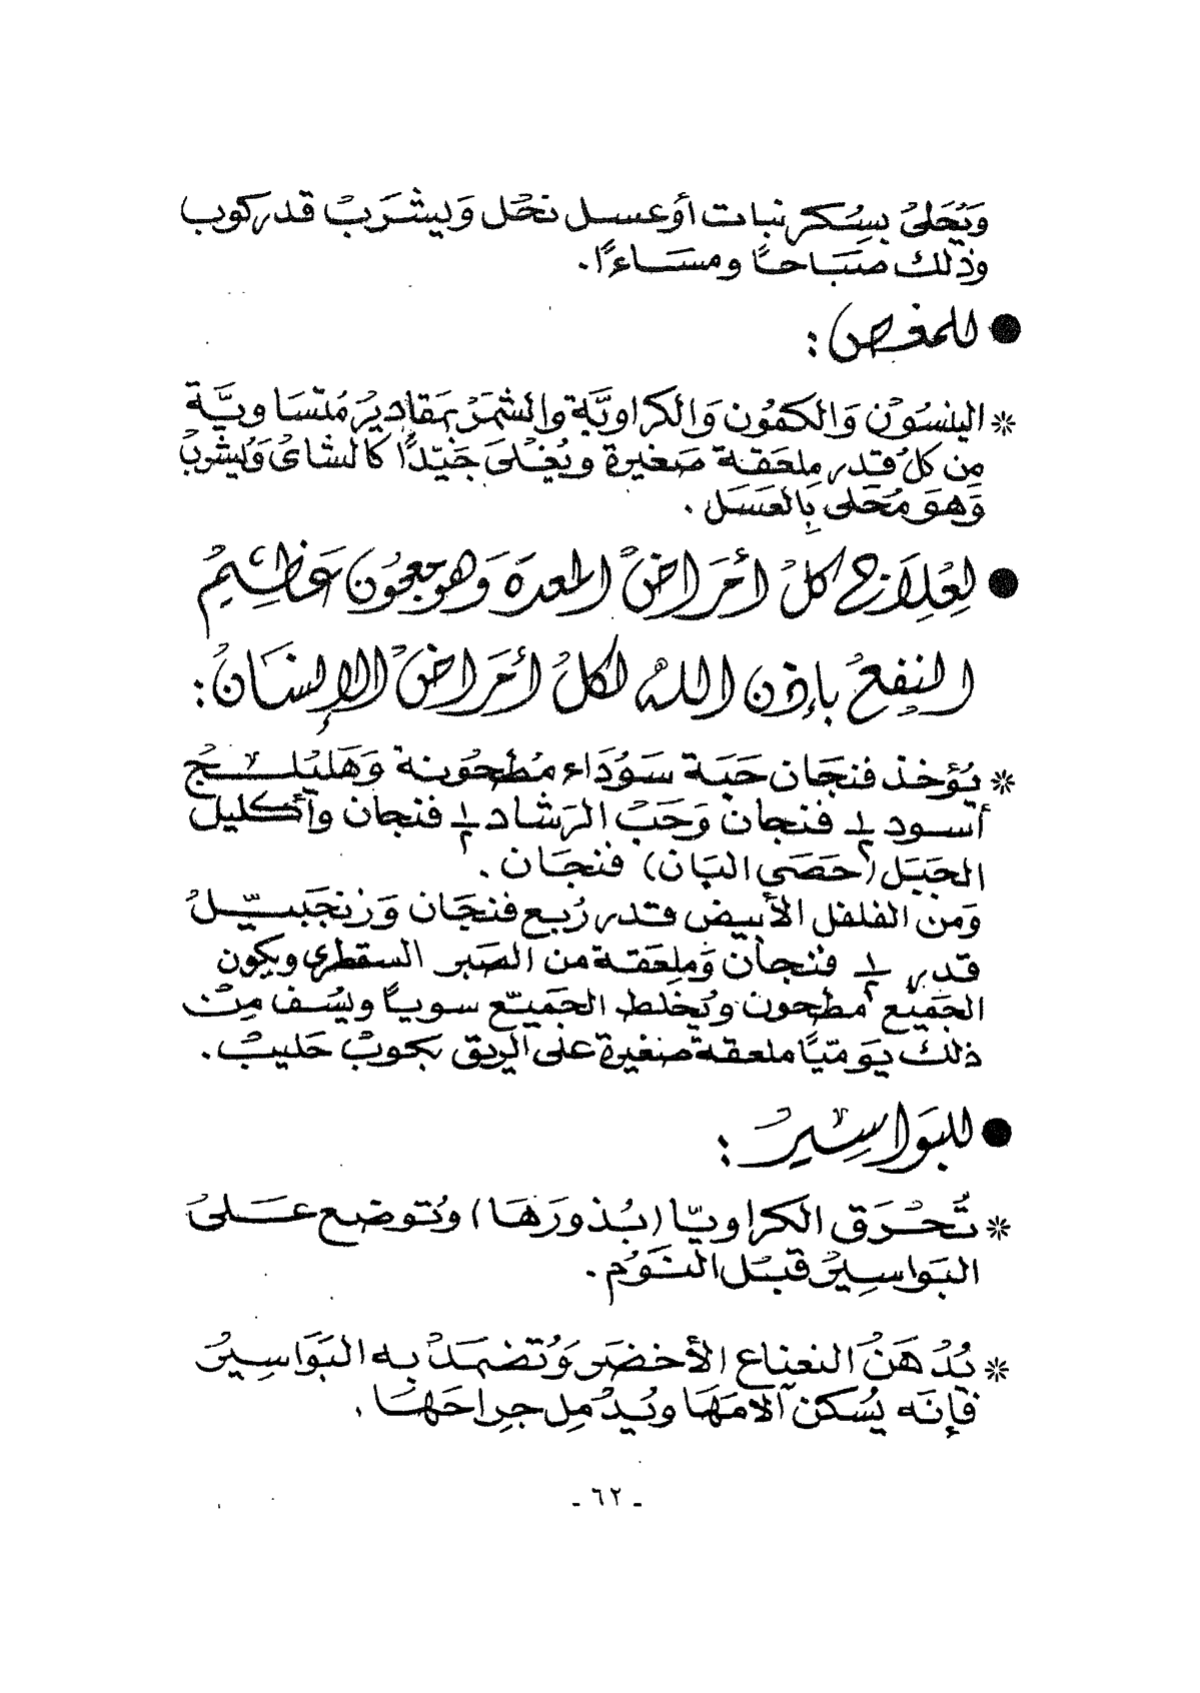 وَيُحَلىُ بسِسُكر نبات أوعسل نحْل وَيشْرَبْ قدركوب
وذلك صَبَاحاً ومسَاءًا.
● للمغص :
* الينسُوْن وَالكمُون وَالكراويَّة والشمَرْ بمَقاديرْ مُتسَاويَّة
من كلْ قدر ملعَقة صَغيرة ويُغْلىَ جَيّدًا كالشاىْ وَيُشربْ
وَهوَ مُحَلى بِالعَسَل .
● لعِلَاج كلْ أمَراضْ المعدَة وَهو معجُون عَظِيمْ
النفِعْ بإذن اللهْ لكلْ أمَراضْ الإِنسَانْ :
* يُؤخذ فنجَان حَبَة سَوْدَاء مُطحُونة وَهَليْلــجْ
أسود ١/٢ فنجان وَحَبْ الرَشاد ١/٢ فنجان وأكليل
الجَبَل (حَصَى البَان) فنجَان .
وَمن الفلفل الأبيض قدر رُبع فنجَان وَزنجَبيّلْ
قدر ١/٢ فنجان وَملِعَقة من الصَبر السقطرى ويكون
الجَميع مطحون ويُخلط الجَميّع سوياً ويسُف مِنْ
ذلك يَومّياً ملعقة صَغيرة على الريق بكوبْ حَليبْ .
● للبَواسِيرْ :
* تُحْرَق الكراويّا (بُذورَهَا) وتُوضع عَـلىْ
البَواسِيرْ قبْل النَوْم .
* يُدْهَنْ النعناع الأخضَر وَتُضمَدْ به البَوَاسِيرْ
فإنَه يُسَكنْ آلامَهَا ويُدْمِل جِراحَهَا .
- ٦٢ -